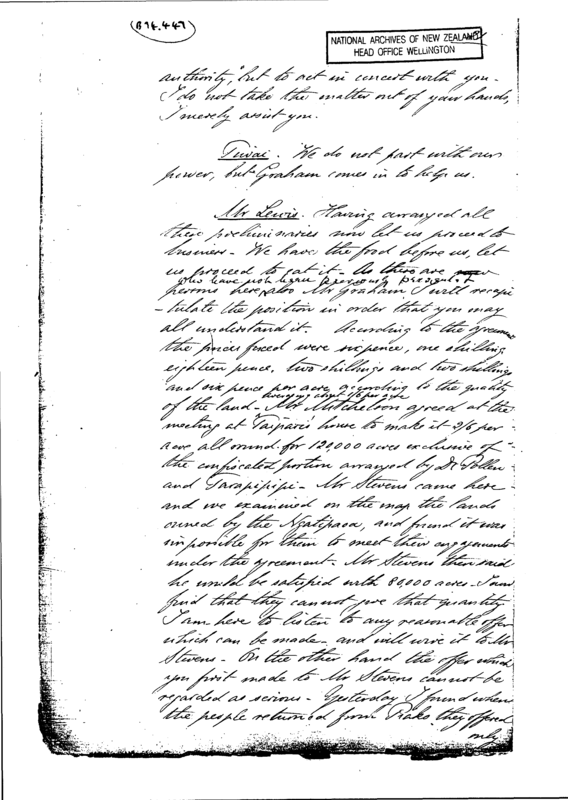 (B 74.447)
NATIONAL ARCHIVES OF NEW ZEALAND
HEAD OFFICE WELLINGTON
authority, but to act in concert with you -
I do not take the matter out of your hands,
I merely assist you.
Tiwai. We do not part with our
power, but Graham comes in to help us.
Mr Lewis. Having arranged all
these preliminaries now let us proceed to
business - We have the food before us, let
us proceed to eat it - As there are
who have not been previously present &
persons here, also Mr Graham, I will recapi
-tulate the position in order that you may
all understand it. According to the agreement
the prices fixed were sixpence, one shilling
eighteen pence, two shillings and two shillings
and six pence per acre, according to the quality
averaging abt 1/6 per acre
of the land - Mr Mitchelson agreed at the
meeting at Taipari's house to make it 2/6 per
acre all round for 120,000 acres exclusive of
the confiscated portion arranged by Dr Pollen
and Tarapipipi - Mr Stevens came here
and we examined on the map the lands
owned by the Ngatipaoa, and found it was
impossible for them to meet their engagements
under the agreement - Mr Stevens then said
he would be satisfied with 80,000 acres - I now
find that they cannot give that quantity
I am here to listen to any reasonable offer
which can be made - and will wire it to Mr
Stevens - On the other hand the offer which
you first made to Mr Stevens cannot be
regarded as serious - Yesterday I found when
the people returned from Piako they offered
only